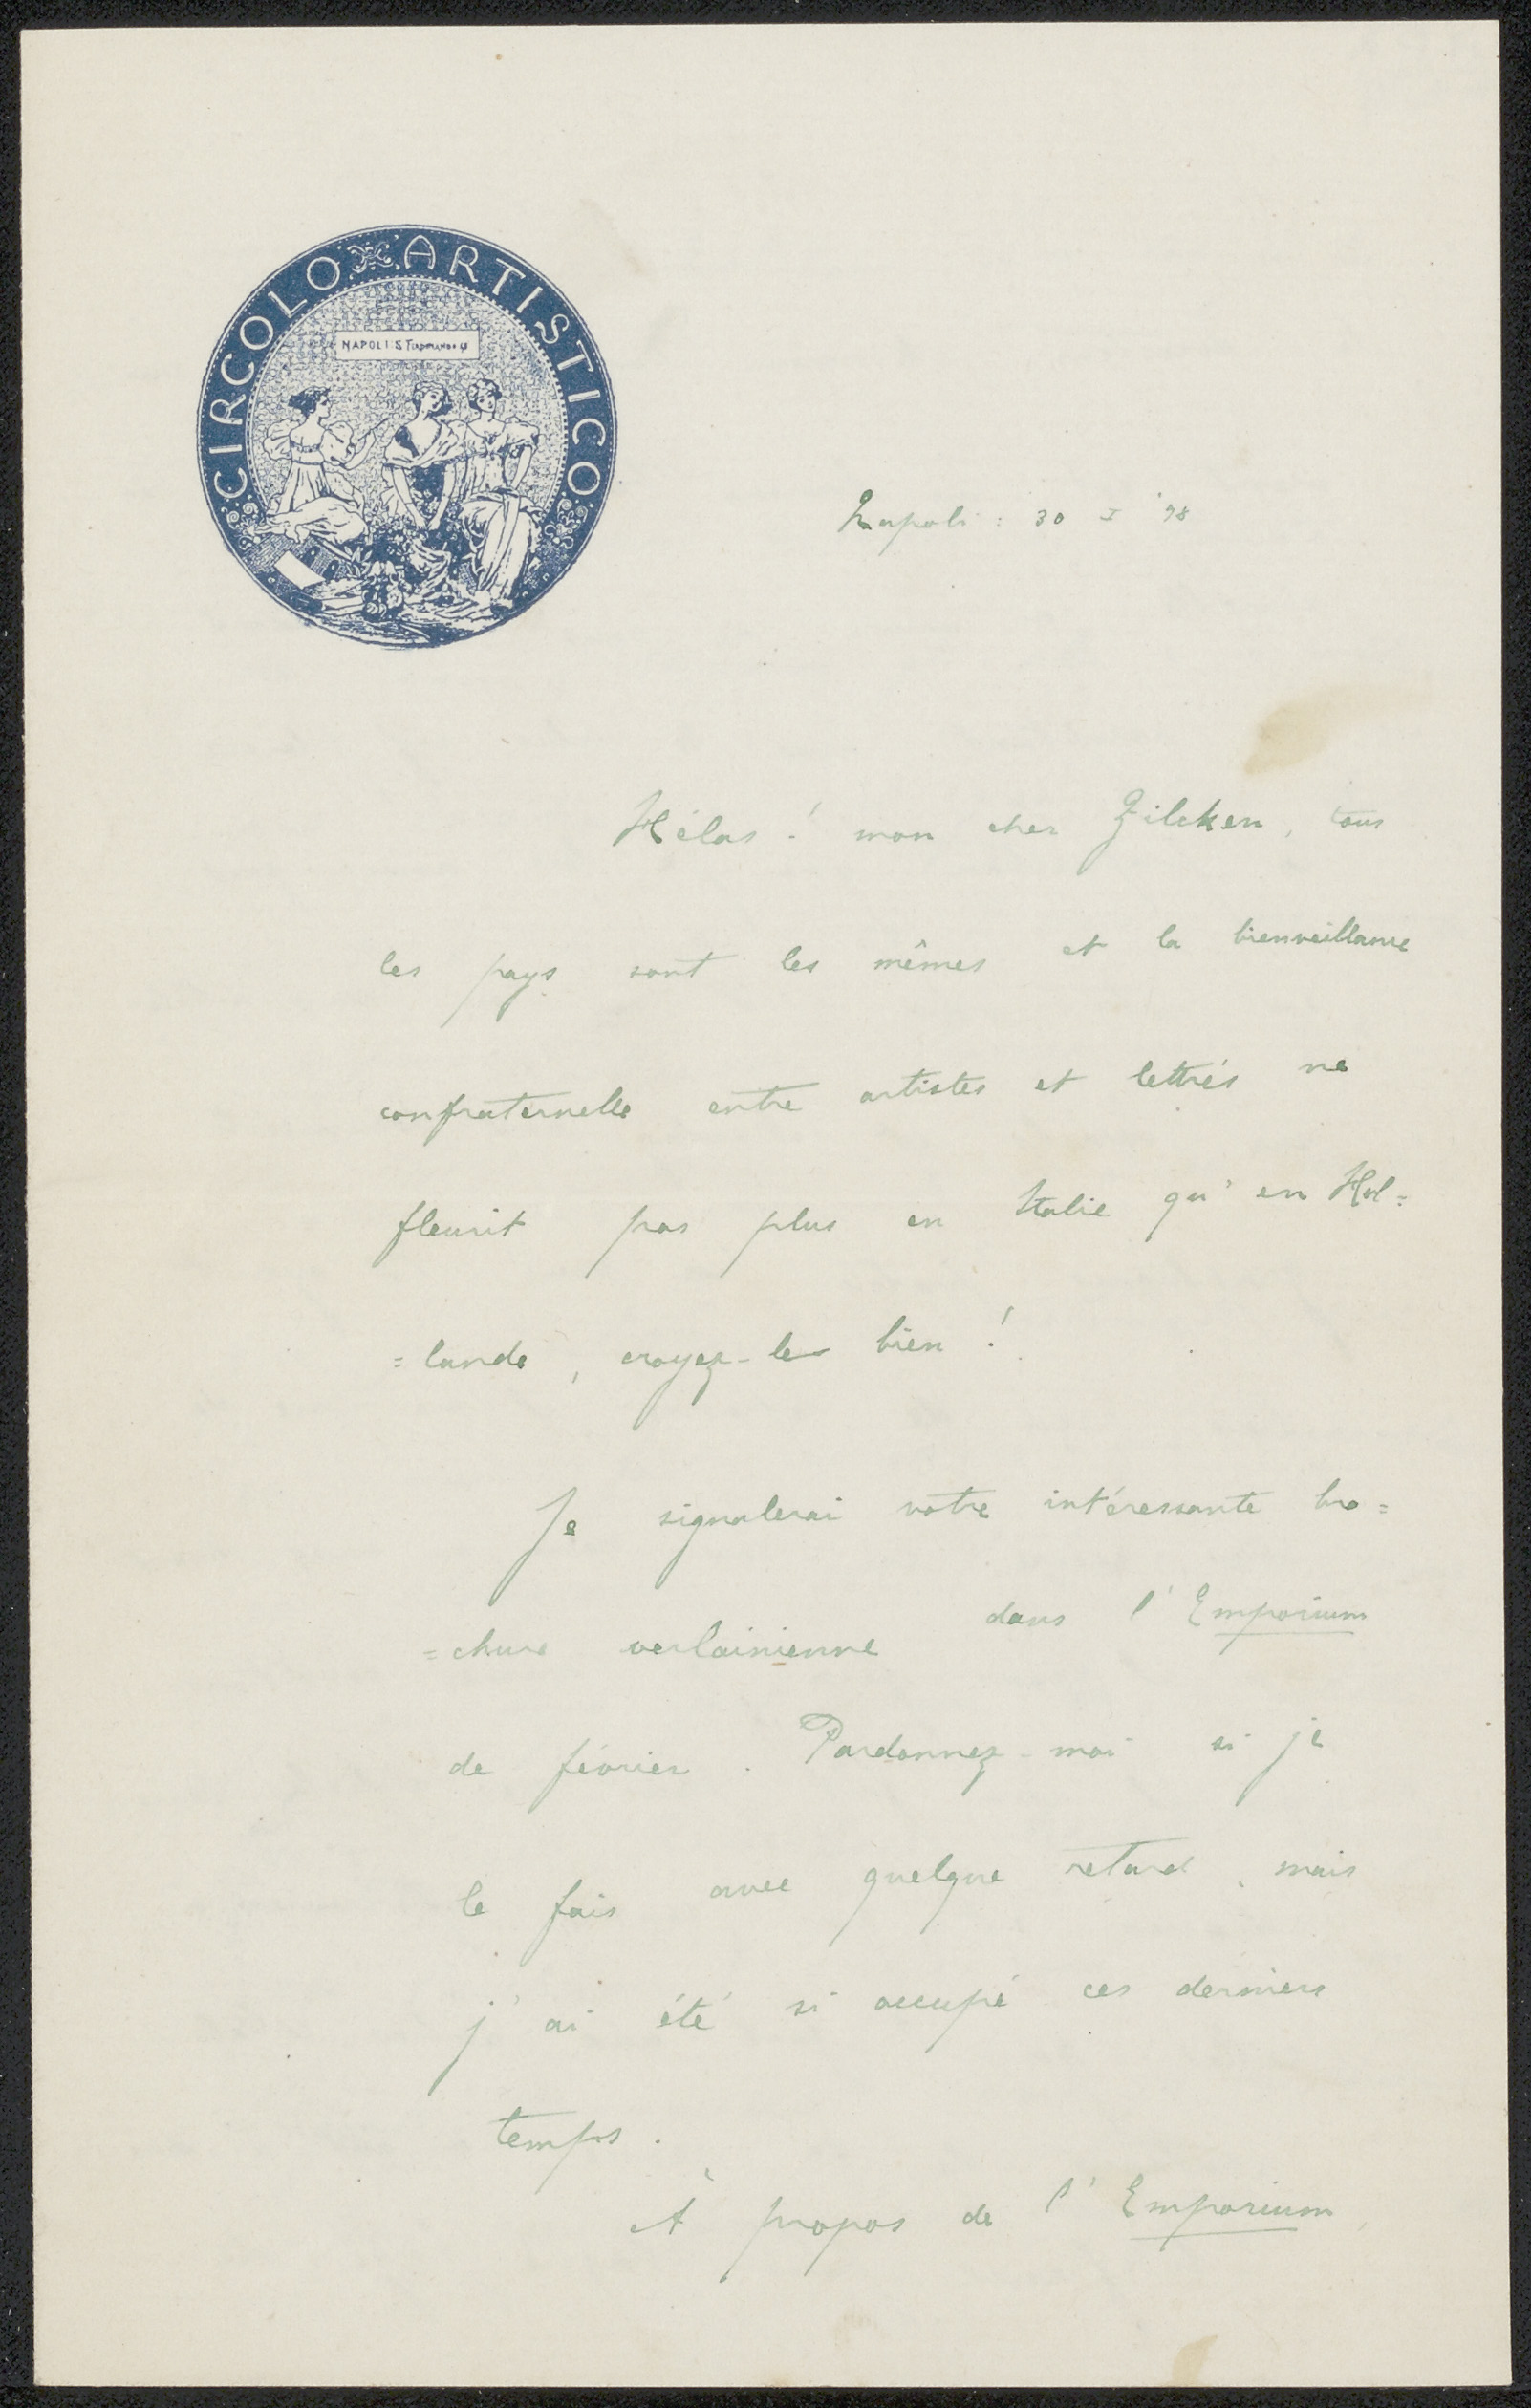 CIRCOLO ARTISTICO
NAPOLI S. Ferdinando
Napoli : 30 I '98
Hélas ! mon cher Zilcken, tous
les pays sont les mêmes et la bienveillance
confraternelle entre artistes et lettrés ne
fleurit pas plus en Italie qu'en Hol=
=lande, croyez-le bien !
Je signalerai votre intéressante bro=
=chure verlainienne dans l'Emporium
de février. Pardonnez-moi si je
le fais avec quelque retard, mais
j'ai été si occupé ces derniers
temps.
À propos de l'Emporium,